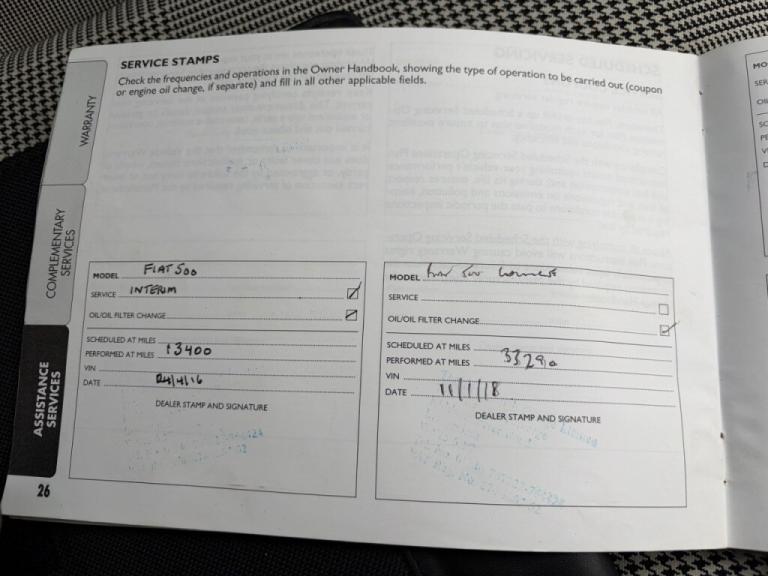 SERVICE STAMPS
Check the frequencies and operations in the Owner Handbook, showing the type of operation to be carried out (coupon
or engine oil change, if separate) and fill in all other applicable fields.
WARRANTY
COMPLEMENTARY
SERVICES
ASSISTANCE
SERVICES
MODEL FIAT 500
SERVICE INTERIM
OIL/OIL FILTER CHANGE
SCHEDULED AT MILES
PERFORMED AT MILES 13400
VIN
DATE 04/4/16
DEALER STAMP AND SIGNATURE
MODEL Fiat 500
SERVICE
OIL/OIL FILTER CHANGE
SCHEDULED AT MILES
PERFORMED AT MILES
VIN
DATE 11/1/18
DEALER STAMP AND SIGNATURE
26